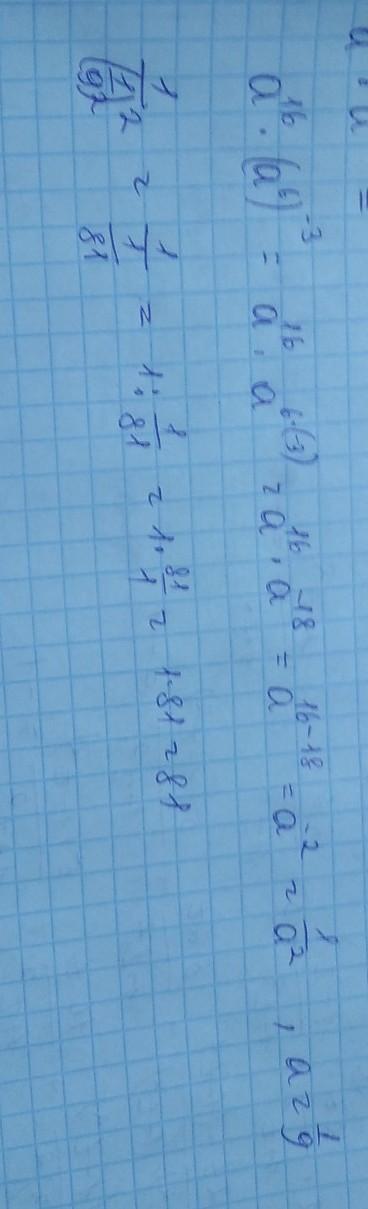 a · a =
a^16 · (a^6)^-3 = a^16 · a^6·(-3) = a^16 · a^-18 = a^16-18 = a^-2 = 1/a^2 , a = 1/9
1/(1/9)^2 = 1/(1/81) = 1 : 1/81 = 1 · 81/1 = 1·81 = 81